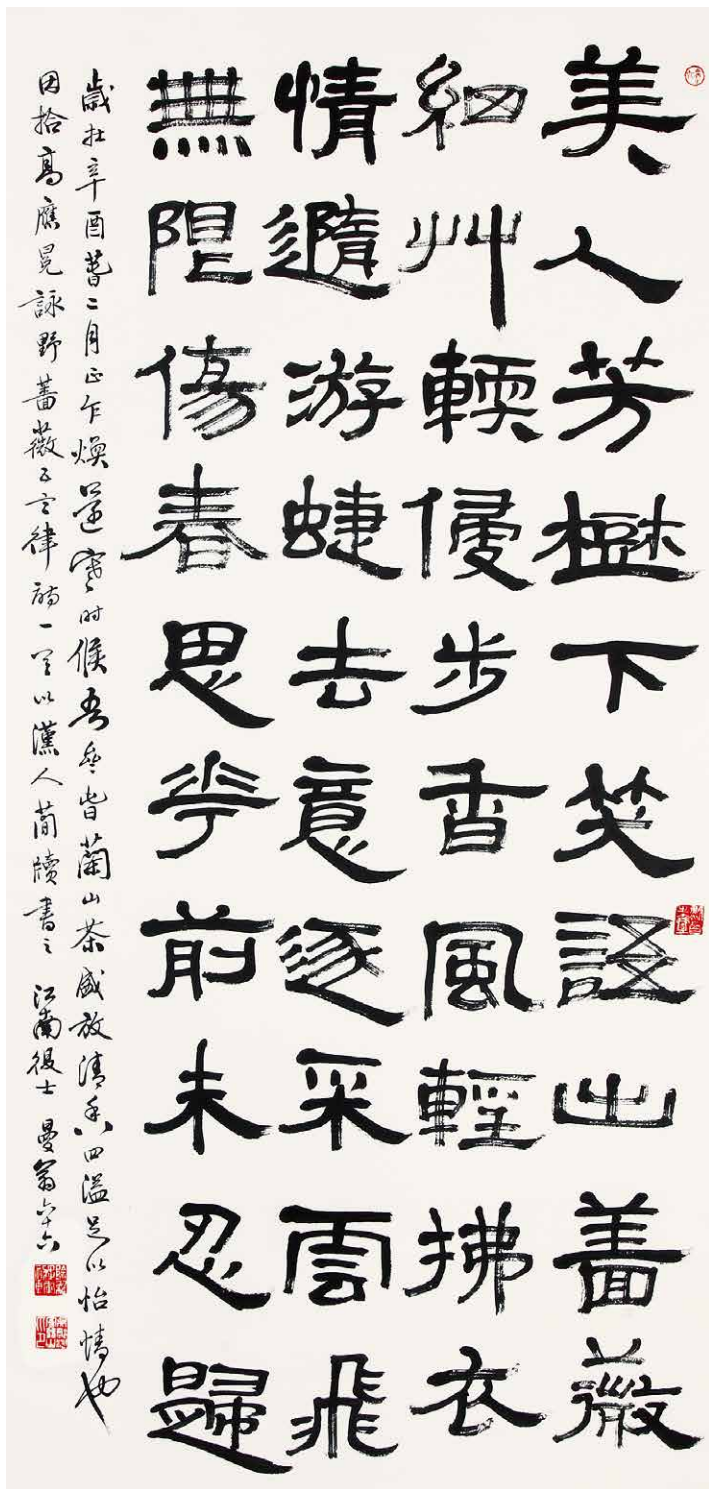 美人芳樾下笑語出薔薇
細艸輭侵步香風輕拂衣
情隨游蜨去意逐采雲飛
無限傷春思華前未忍歸
歲在辛酉暮二月正乍煖還寒時候吾家皆蘭山茶盛放清香四溢足以怡情也
因拾高應冕詠野薔薇五言律詩一首以漢人簡牘書之 江南後士 曼翁六十六